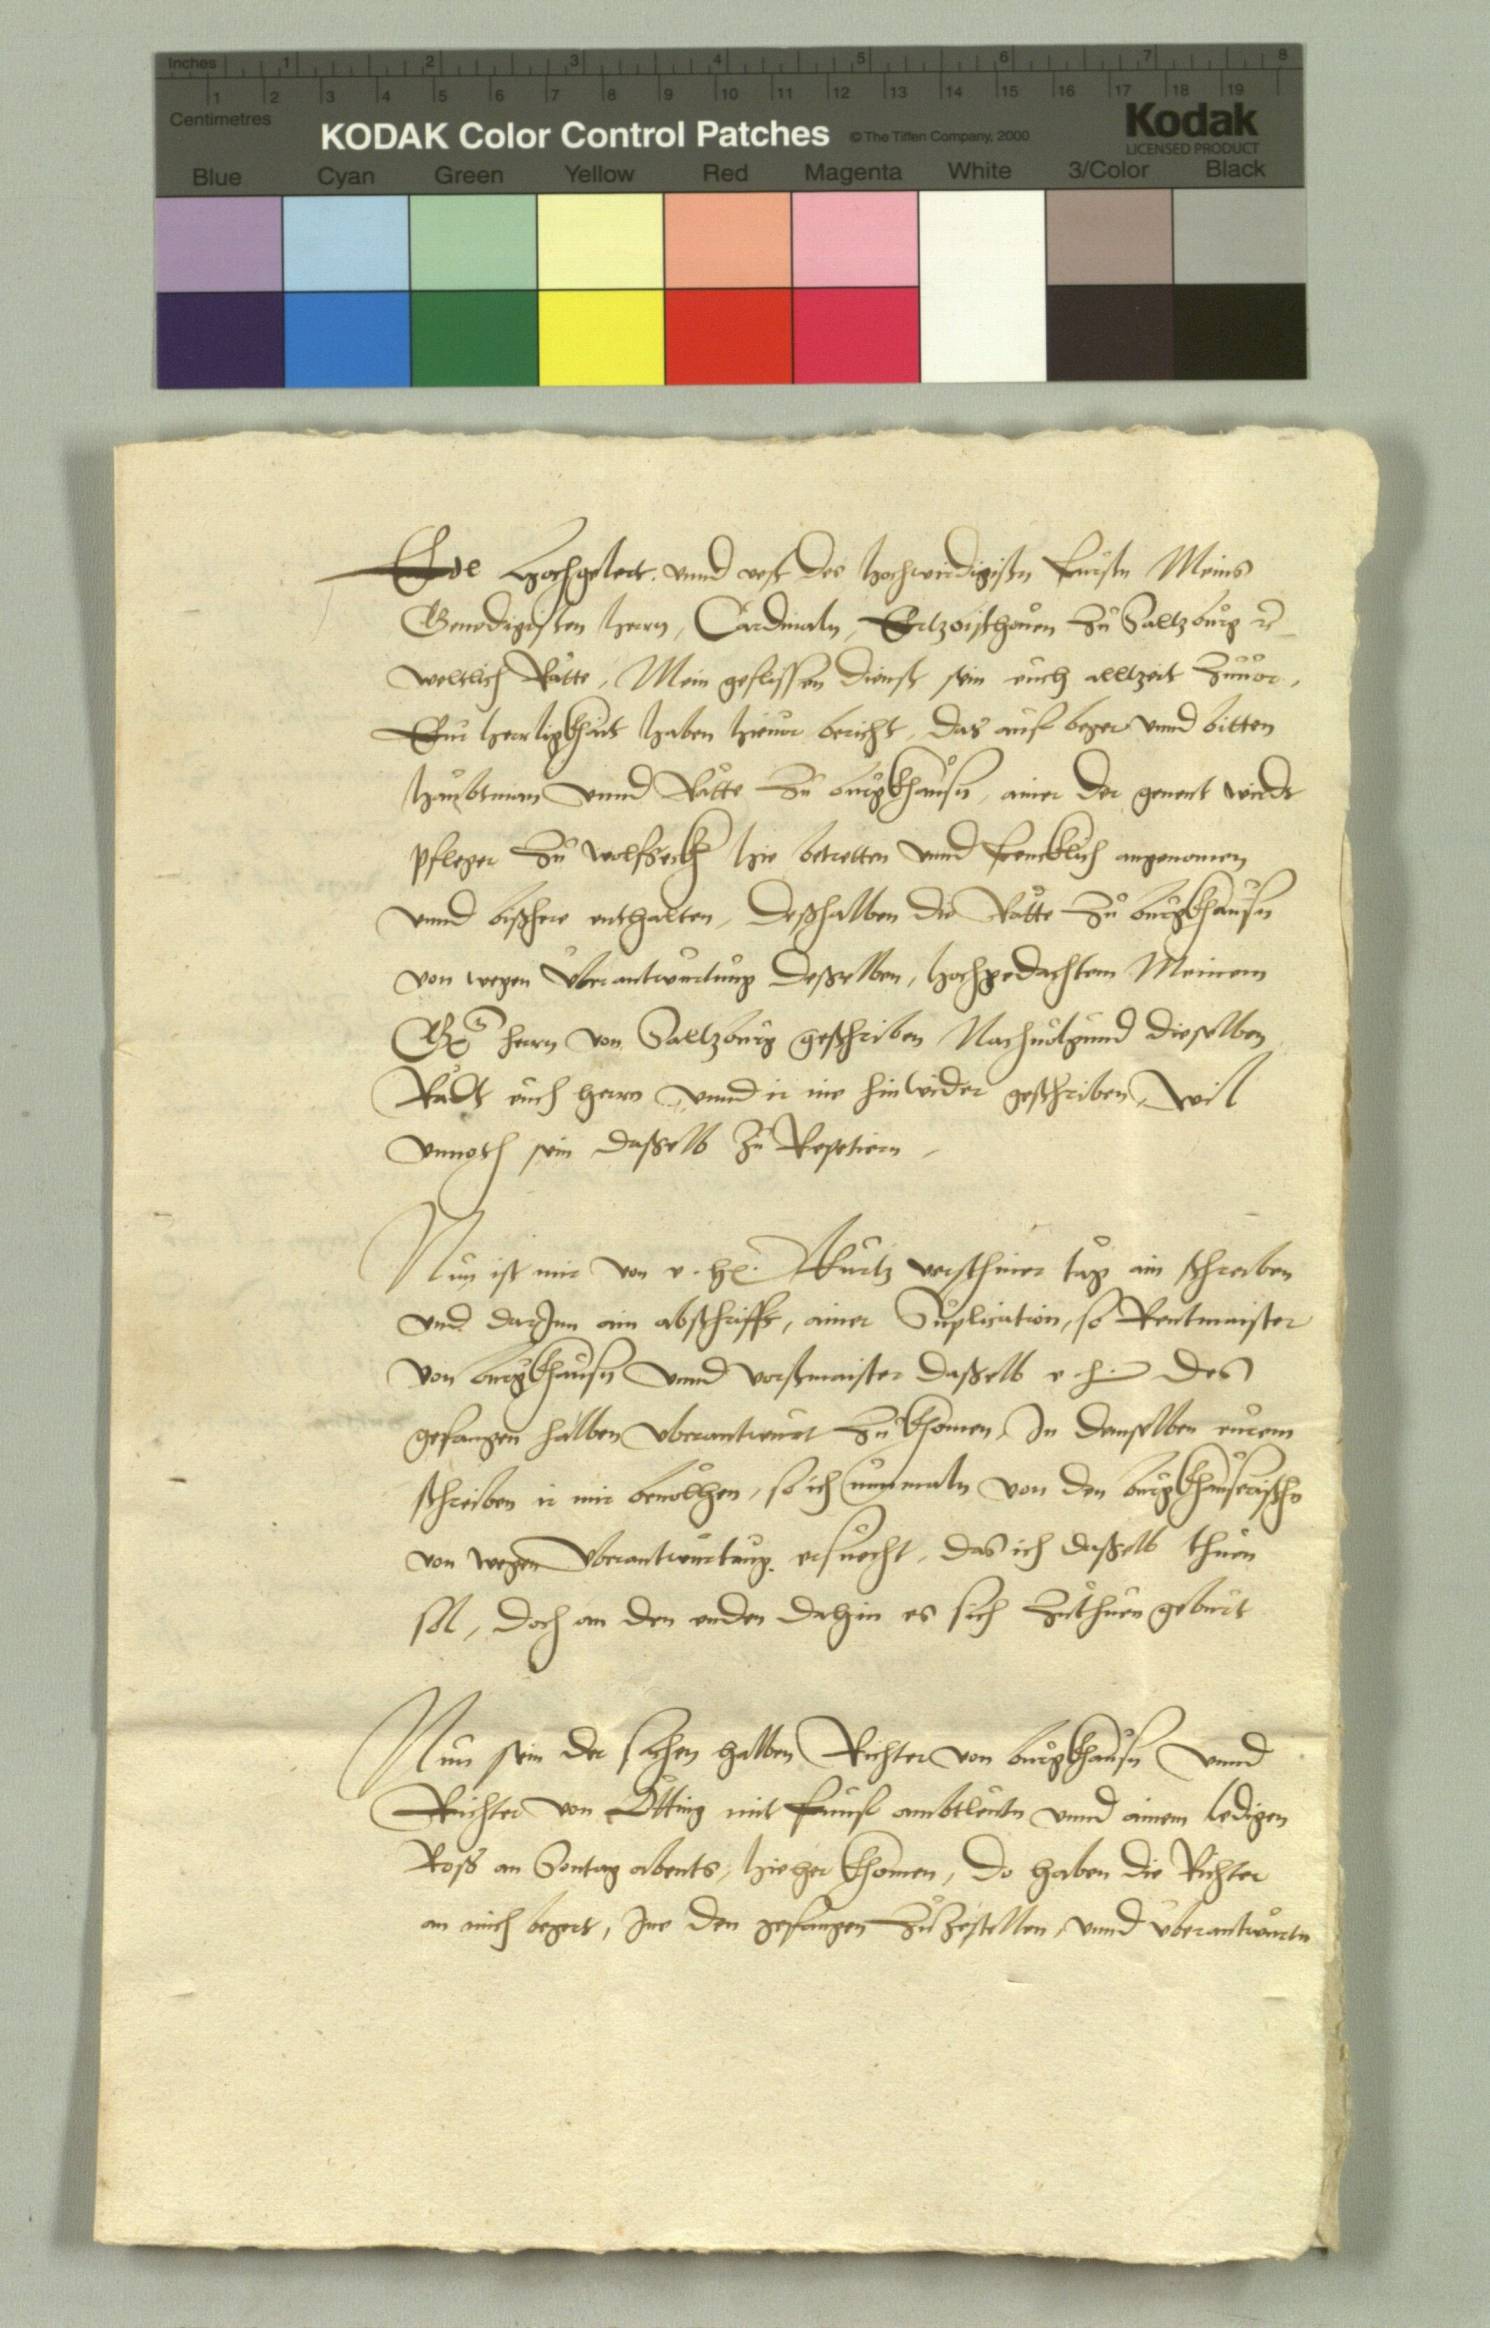 Inches 1 2 3 4 5 6 7 8
Centimetres 1 2 3 4 5 6 7 8 9 10 11 12 13 14 15 16 17 18 19
KODAK Color Control Patches © The Tiffen Company, 2000 Kodak
LICENSED PRODUCT
Blue Cyan Green Yellow Red Magenta White 3/Color Black
Hochgelert vnnd vest des hochwirdigisten Fürstn Meins
Genedigisten herrn, Cardinaln, Ertzbischouen zů Saltzburg
weltlich Rätte, Mein geflissen dienst sein euch alltzeit zuuor,
Eur herrligkhait haben hieuor bericht, das auf beger vnnd bitten
haubtman vnnd Rätte zů burgkhausn, ainer der genent wirdt
pfleger zů wolfsekh hie betretten vnnd fencklich angenomen
vnnd bisher enthalten, deßhalben die Rätte zů burgkhausn
von wegen vberantwurtung desselben, hochgedachtem Meinem
herrn von Saltzburg geschriben Nachuolgund dieselben
Rädt euch herrn vnnd ir ine hinwider geschriben, wil
vnnoth sein dasselb zů Repetiern,
Nun ist mir von e. h. kurtz verschiner tag ain schreiben
vnd darJnn ain abschrifft, ainer Suplication, so Rentmaister
von burgkhausn vnnd vorstmaister daselb e. h. des
gefangen halben vberantwurt zů khomen, In demselben eurem
schreiben ir mir beuolhen, so ich nunmaln von den burgkhauserischn
von wegen vberantwurtung ersuecht, das ich dasselb thuen
sol, doch an den enden dahin es sich zuthuen geburt
Nun sein der sachen halben Richter von burgkhausn vnnd
Richter von Ötting mit fünf ambtleutn vnnd ainem ledigen
Ross an Sontag abents, hieher khomen, do haben die Richter
an mich begert, Jne den gefangen zůzestellen, vnnd vberantwurtn